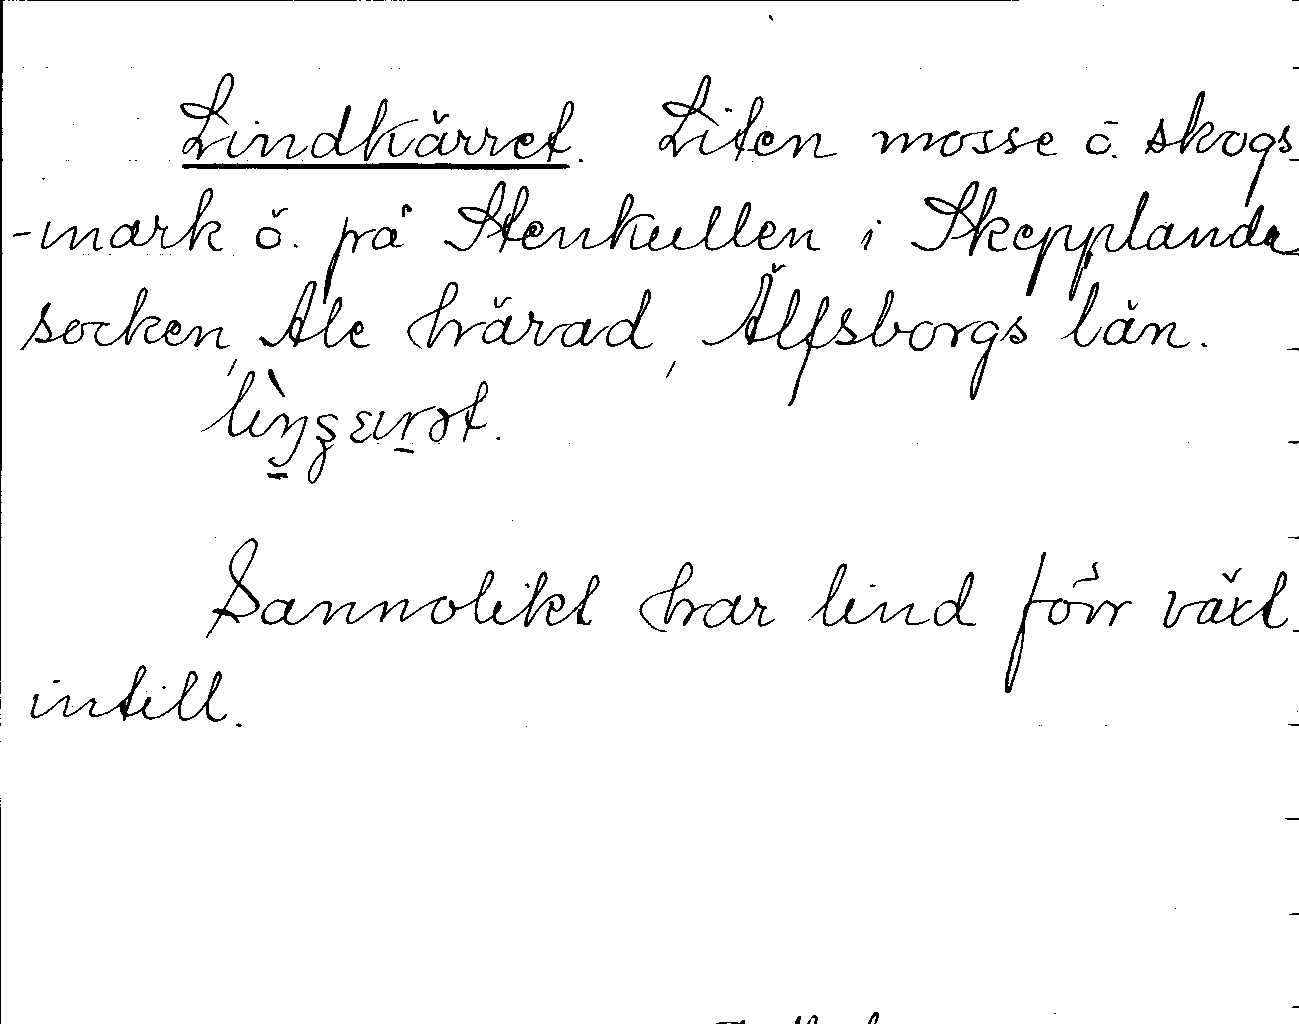 Lindkärret. Liten mosse ö. skogs
-mark ö. på Stenkullen i Skepplanda
socken, Ale härad, Älfsborgs län.
Sannolikt har lind förr växt
intill.